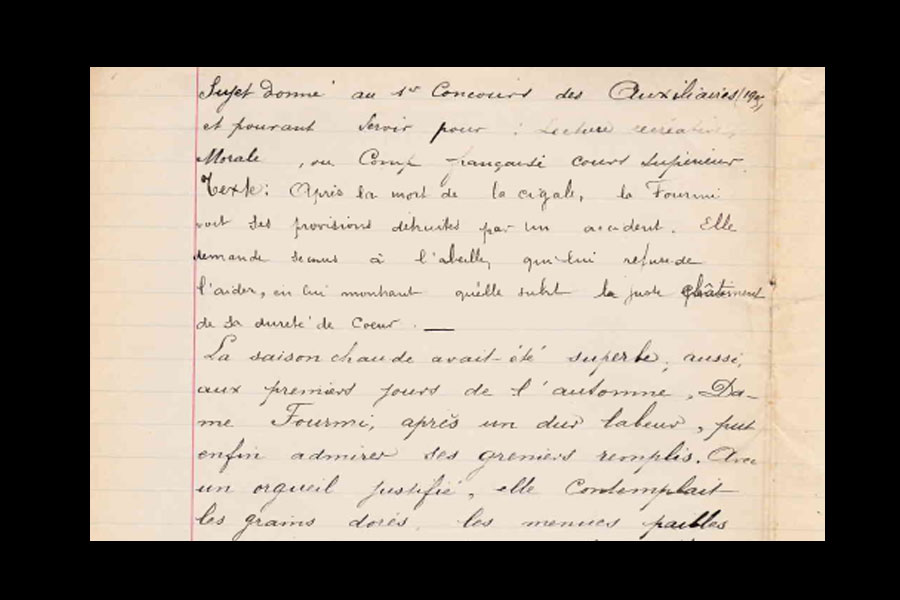 Sujet donné au 1er Concours des Auxiliaires
et pouvant servir pour : Lecture recréative,
Morale , ou Comp française cours Supérieur
Texte : Après la mort de la cigale, la Fourmi
voit ses provisions détruites par un accident. Elle
demande secours à l'abeille, qui lui refuse de
l'aider, en lui montrant qu'elle subit le juste châtiment
de sa dureté de Coeur . —
La saison chaude avait été superbe, aussi,
aux premiers jours de l'automne, Da-
me Fourmi, après un dur labeur, put
enfin admirer ses greniers remplis. Avec
un orgueil justifié, elle Contemplait
les grains dorés, les menues pailles